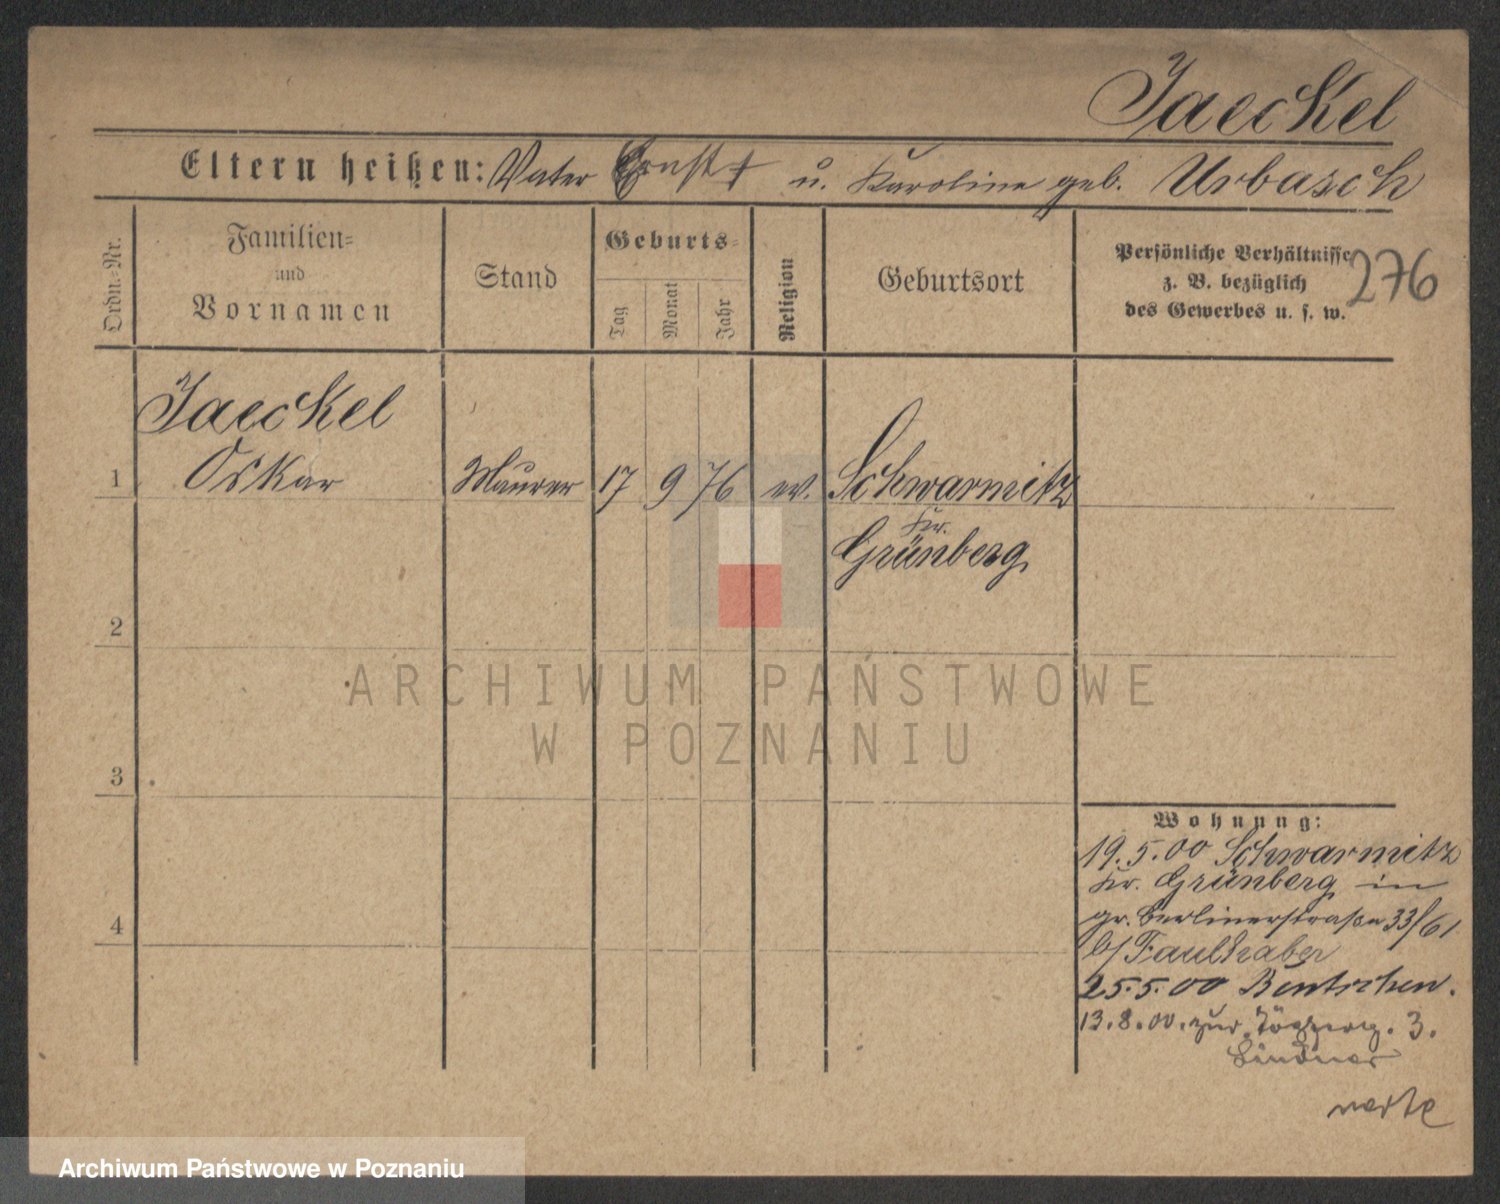 Jaeckel
Eltern heißen: Vater Ernst † u. Karoline geb. Urbasch
Ordn.-Nr.
Familien-
und
Vornamen
Stand
Geburts-
Tag
Monat
Jahr
Religion
Geburtsort
Persönliche Verhältnisse
z. B. bezüglich
des Gewerbes u. s. w.
276
Jaeckel
1 Oskar Maurer 17 9 76 ev. Schwarmitz
Kr.
Grünberg
2
ARCHIWUM PAŃSTWOWE
W POZNANIU
3
Wohnung:
19.5.00 Schwarmitz
Kr. Grünberg in
gr. Berlinerstraße 33/61
b/ Faulhaber
4
25.5.00 Bentschen.
13.8.00. zur 3.
Lindner
Archiwum Państwowe w Poznaniu